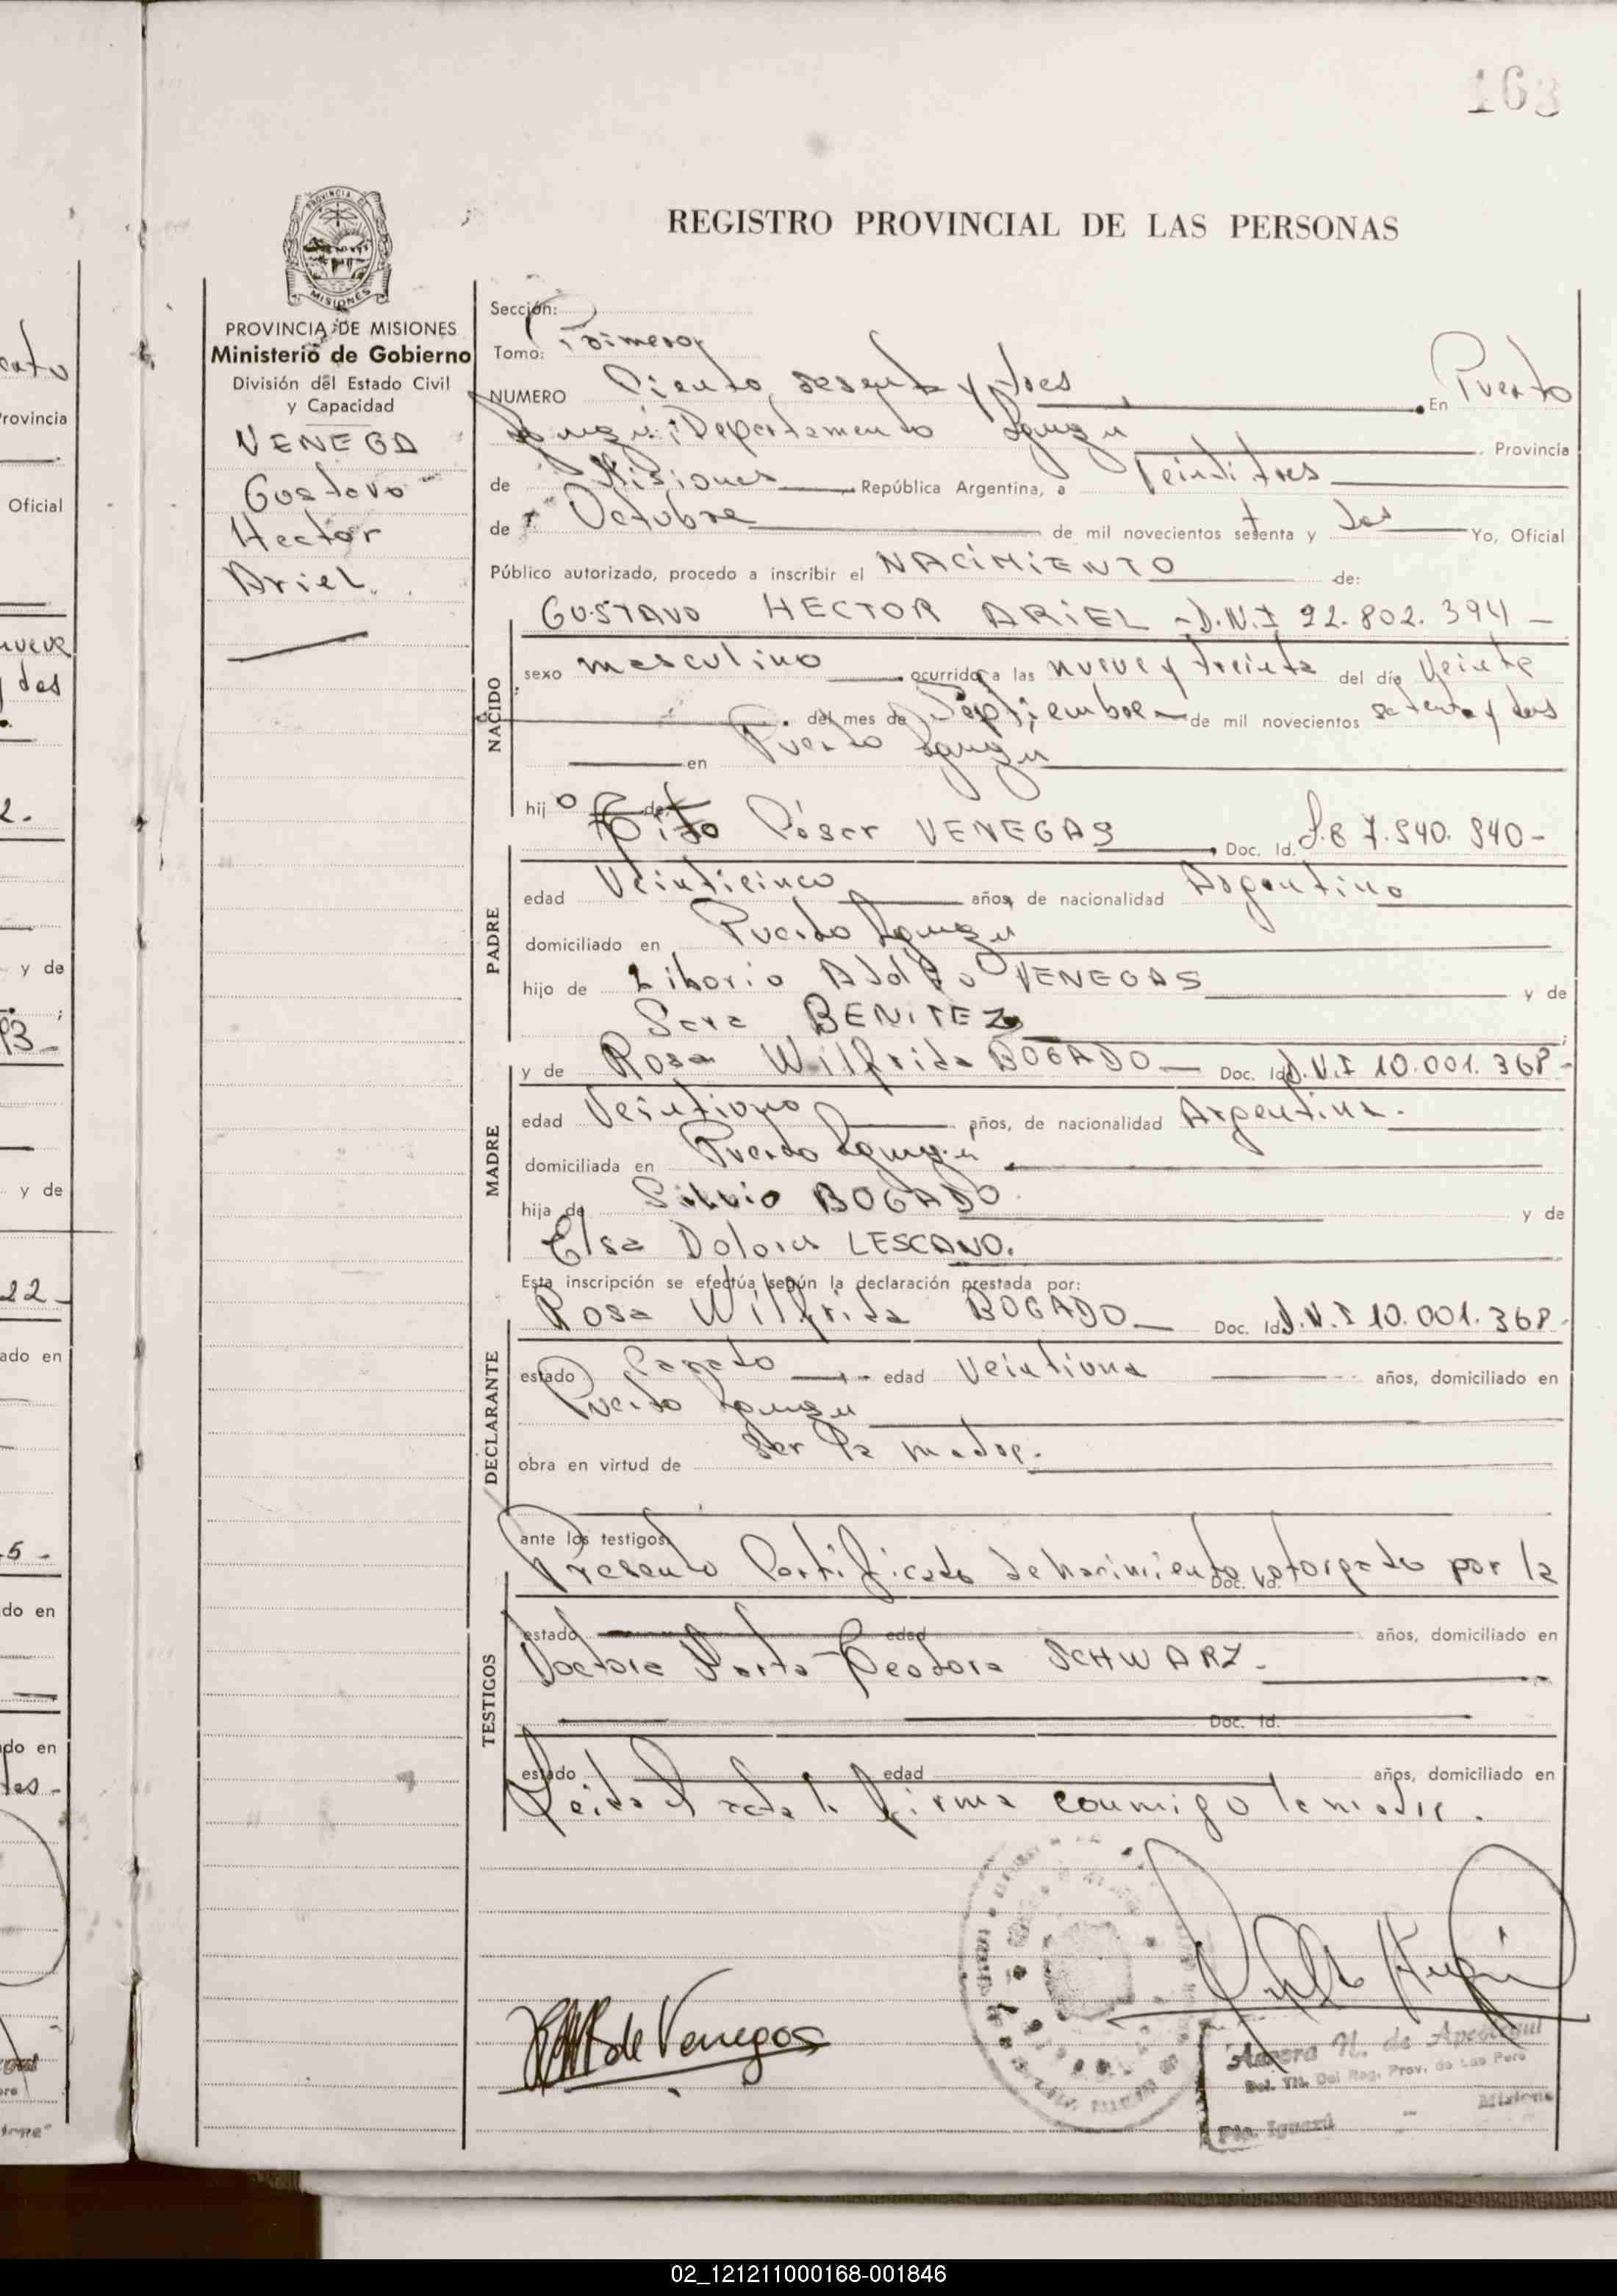 163
REGISTRO PROVINCIAL DE LAS PERSONAS
PROVINCIA DE MISIONES
Ministerio de Gobierno
División del Estado Civil
y Capacidad
VENEGA
Gustavo
Hector
Ariel.
Sección:
Tomo: Primero
NUMERO Ciento sesenta y tres En Puerto
Iguazú; Departamento Iguazu Provincia
de Misiones República Argentina, a Veintitres
de Octubre de mil novecientos setenta y dos Yo, Oficial
Público autorizado, procedo a inscribir el NACIMIENTO de:
GUSTAVO HECTOR ARIEL - D.N.I 22.802.394 -
NACIDO
sexo masculino ocurrido a las nueve y treinta del día Veinte
del mes de Septiembre de mil novecientos setenta y dos
en Puerto Iguazu
hijo de
VENEGAS Doc. Id.
PADRE
edad Veinticinco años, de nacionalidad Argentino
domiciliado en Puerto Iguazu
hijo de Liborio Adolfo VENEGAS y de
Sara BENITEZ
y de Rosa Wilfrida BOGADO Doc. Id. D.N.I 10.001.368-
MADRE
edad Veintiuno años, de nacionalidad Argentina.
domiciliada en Puerto Iguazú
hija de Silvio BOGADO y de
Elsa Dolores LESCANO.
Esta inscripción se efectúa según la declaración prestada por:
Rosa Wilfrida BOGADO Doc. Id. D.N.I 10.001.368-
DECLARANTE
estado Casado edad Veintiuna años, domiciliado en
Puerto Iguazu
obra en virtud de Ser la madre.
ante los testigos
Presento Certificado de nacimiento otorgado por la
Doc. Id.
TESTIGOS
estado edad años, domiciliado en
Doctora Teodora SCHWARZ.
Doc. Id.
estado edad años, domiciliado en
Leida el acta la firma conmigo la madre.
de Venegas
Aurora N. de Apestegui
Del Reg. Prov. de Las Pers
Pto. Iguazú - Misiones
02_121211000168-001846